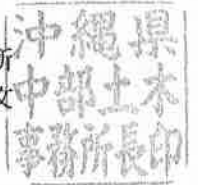 沖縄県
中部土木
事務所長印